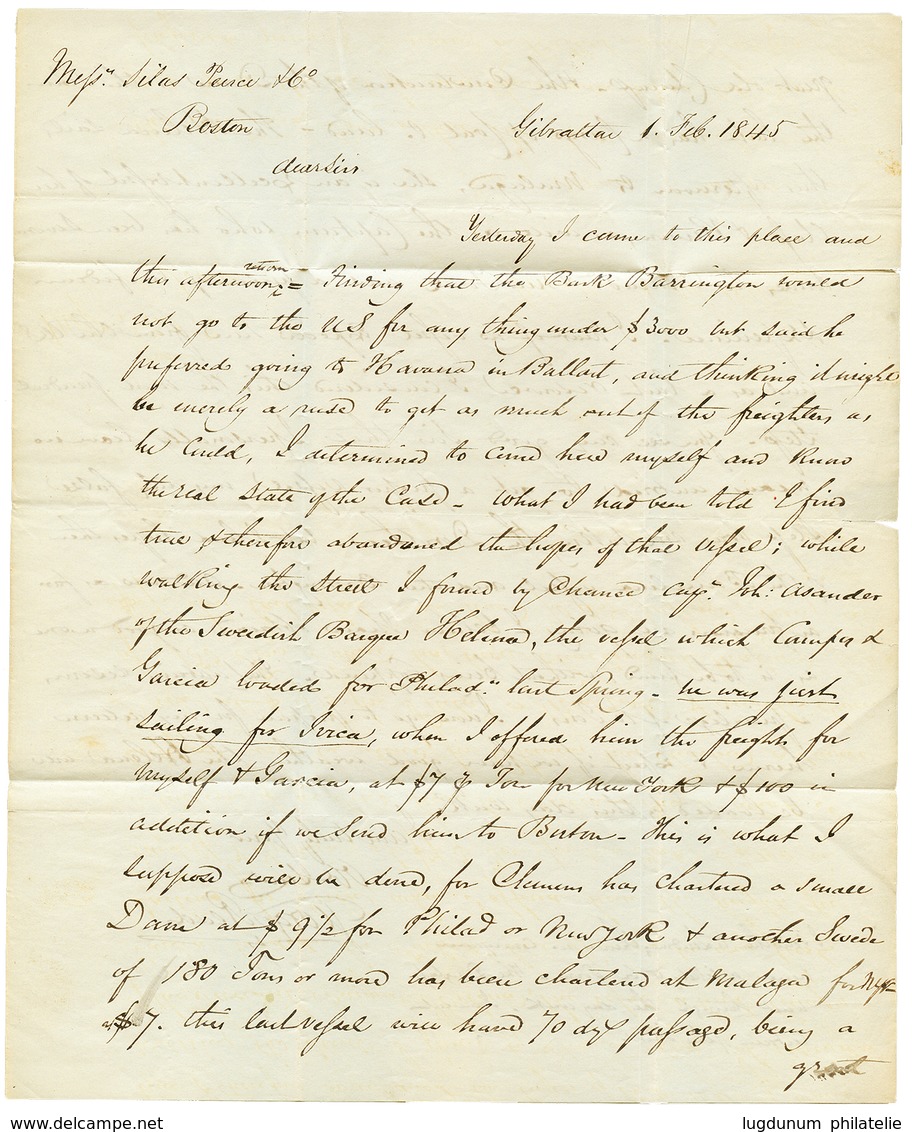 Messrs. Silas Peirce & Co
Boston
Gibraltar 1. Feb. 1845
dear Sirs
Yesterday I came to this place and
return
this afternoon = Finding that the Bark Barrington would
not go to the US for any thing under $3000 but said he
preferred going to Havana in Ballast, and thinking it might
be merely a ruse to get as much out of the freighters as
he could, I determined to come here myself and know
the real state of the case - what I had been told I find
true & therefore abandoned the hopes of that vessel; while
walking the street I found by chance Capt. Joh: Asander
of the Swedish Barque Helena, the vessel which Crumps &
Garcia loaded for Philada. last Spring - he was just
sailing for Ivica, when I offered him the freight for
myself & Garcia, at $7 p Ton for New York & $100 in
addition if we send him to Boston - This is what I
suppose will be done, for Clemens has chartered a small
Dane at $ 9 1/2 for Philad or New York & another Swede
of 180 Tons or more has been chartered at Malaga for NYk
at $7. this last vessel will have 70 dys passage, being a
great
www.delcampe.net
lugdunum philatelie